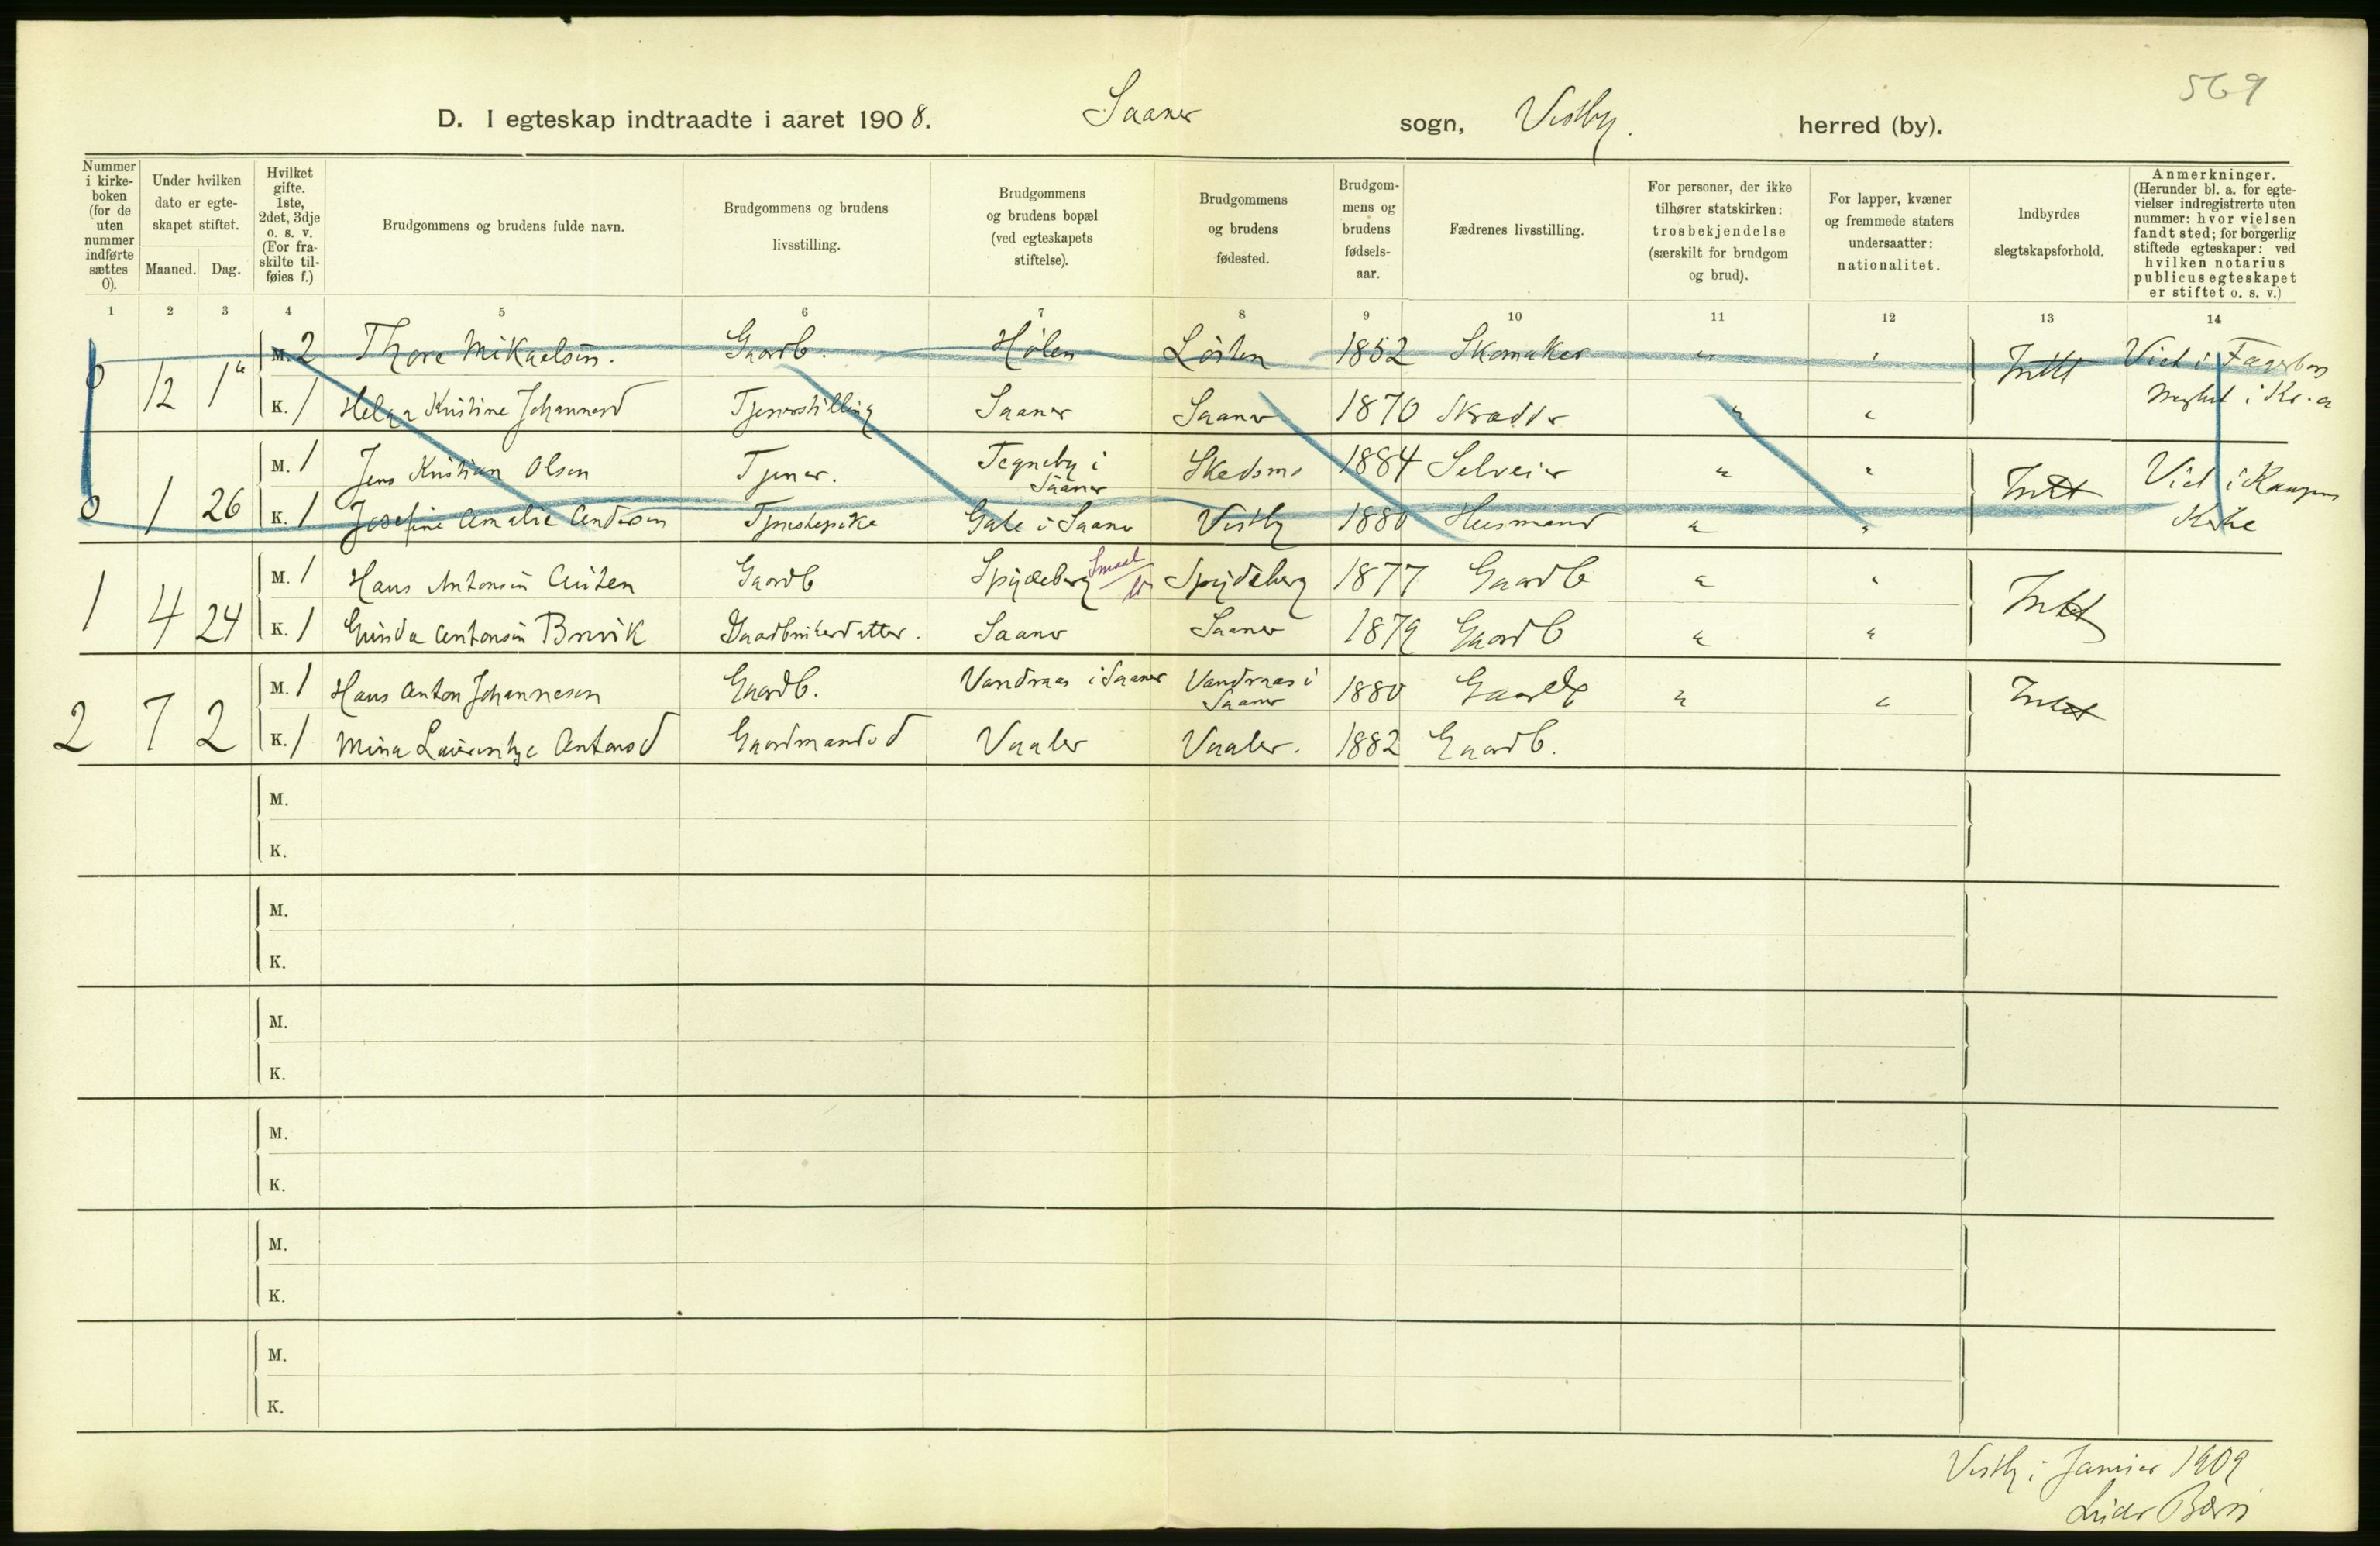 569
D. I egteskap indtraadte i aaret 1908. Saaner sogn, Vestby. herred (by).
Nummer i kirke-boken (for de uten nummer indførte sættes 0).
Under hvilken dato er egte-skapet stiftet.
Maaned. Dag.
Hvilket gifte. 1ste, 2det, 3dje o. s. v. (For fra-skilte til-føies f.)
Brudgommens og brudens fulde navn.
Brudgommens og brudens livsstilling.
Brudgommens og brudens bopæl (ved egteskapets stiftelse).
Brudgommens og brudens fødested.
Brudgom-mens og brudens fødsels-aar.
Fædrenes livsstilling.
For personer, der ikke tilhører statskirken: trosbekjendelse (særskilt for brudgom og brud).
For lapper, kvæner og fremmede staters undersaatter: nationalitet.
Indbyrdes slegtskapsforhold.
Anmerkninger. (Herunder bl. a. for egte-vielser indregistrerte uten nummer: hvor vielsen fandt sted; for borgerlig stiftede egteskaper: ved hvilken notarius publicus egteskapet er stiftet o. s. v.)
1 2 3 4 5 6 7 8 9 10 11 12 13 14
M. 2 Thore Mikaelsen. Gaardb. Hølen Løiten 1852 Skomaker " " Intet Viet i Fagerborg
0 12 1
K. 1 Helga Kristine Johannesd Tjenerstilling Saaner Saaner 1870 Skrædder " " menighet i Kr.a
M. 1 Jens Kristian Olsen Tjener. Tegneby i Saaner Skedsmo 1884 Selveier " " Intet Viet i
0 1 26
K. 1 Josefine Amalie Andersen Tjenestepike i Saaner Vestby 1880 Husmand " " Kirke
M. 1 Hans Antonsen Gaardb Spydeberg Smaal Spydeberg 1877 Gaardb " " Intet
1 4 24
K. 1 Gunda Antonsen Brevik Gaardbrukerdatter. Saaner Saaner 1879 Gaardb " "
M. 1 Hans Anton Johannesen Gaardb. Vandraas i Saaner Vandraas i Saaner 1880 Gaardb " " Intet
2 7 2
K. 1 Mina Antonsd Gaardmandsd Vaaler Vaaler. 1882 Gaardb.
M.
K.
M.
K.
M.
K.
M.
K.
M.
K.
M.
K.
Vestby i Januar 1909